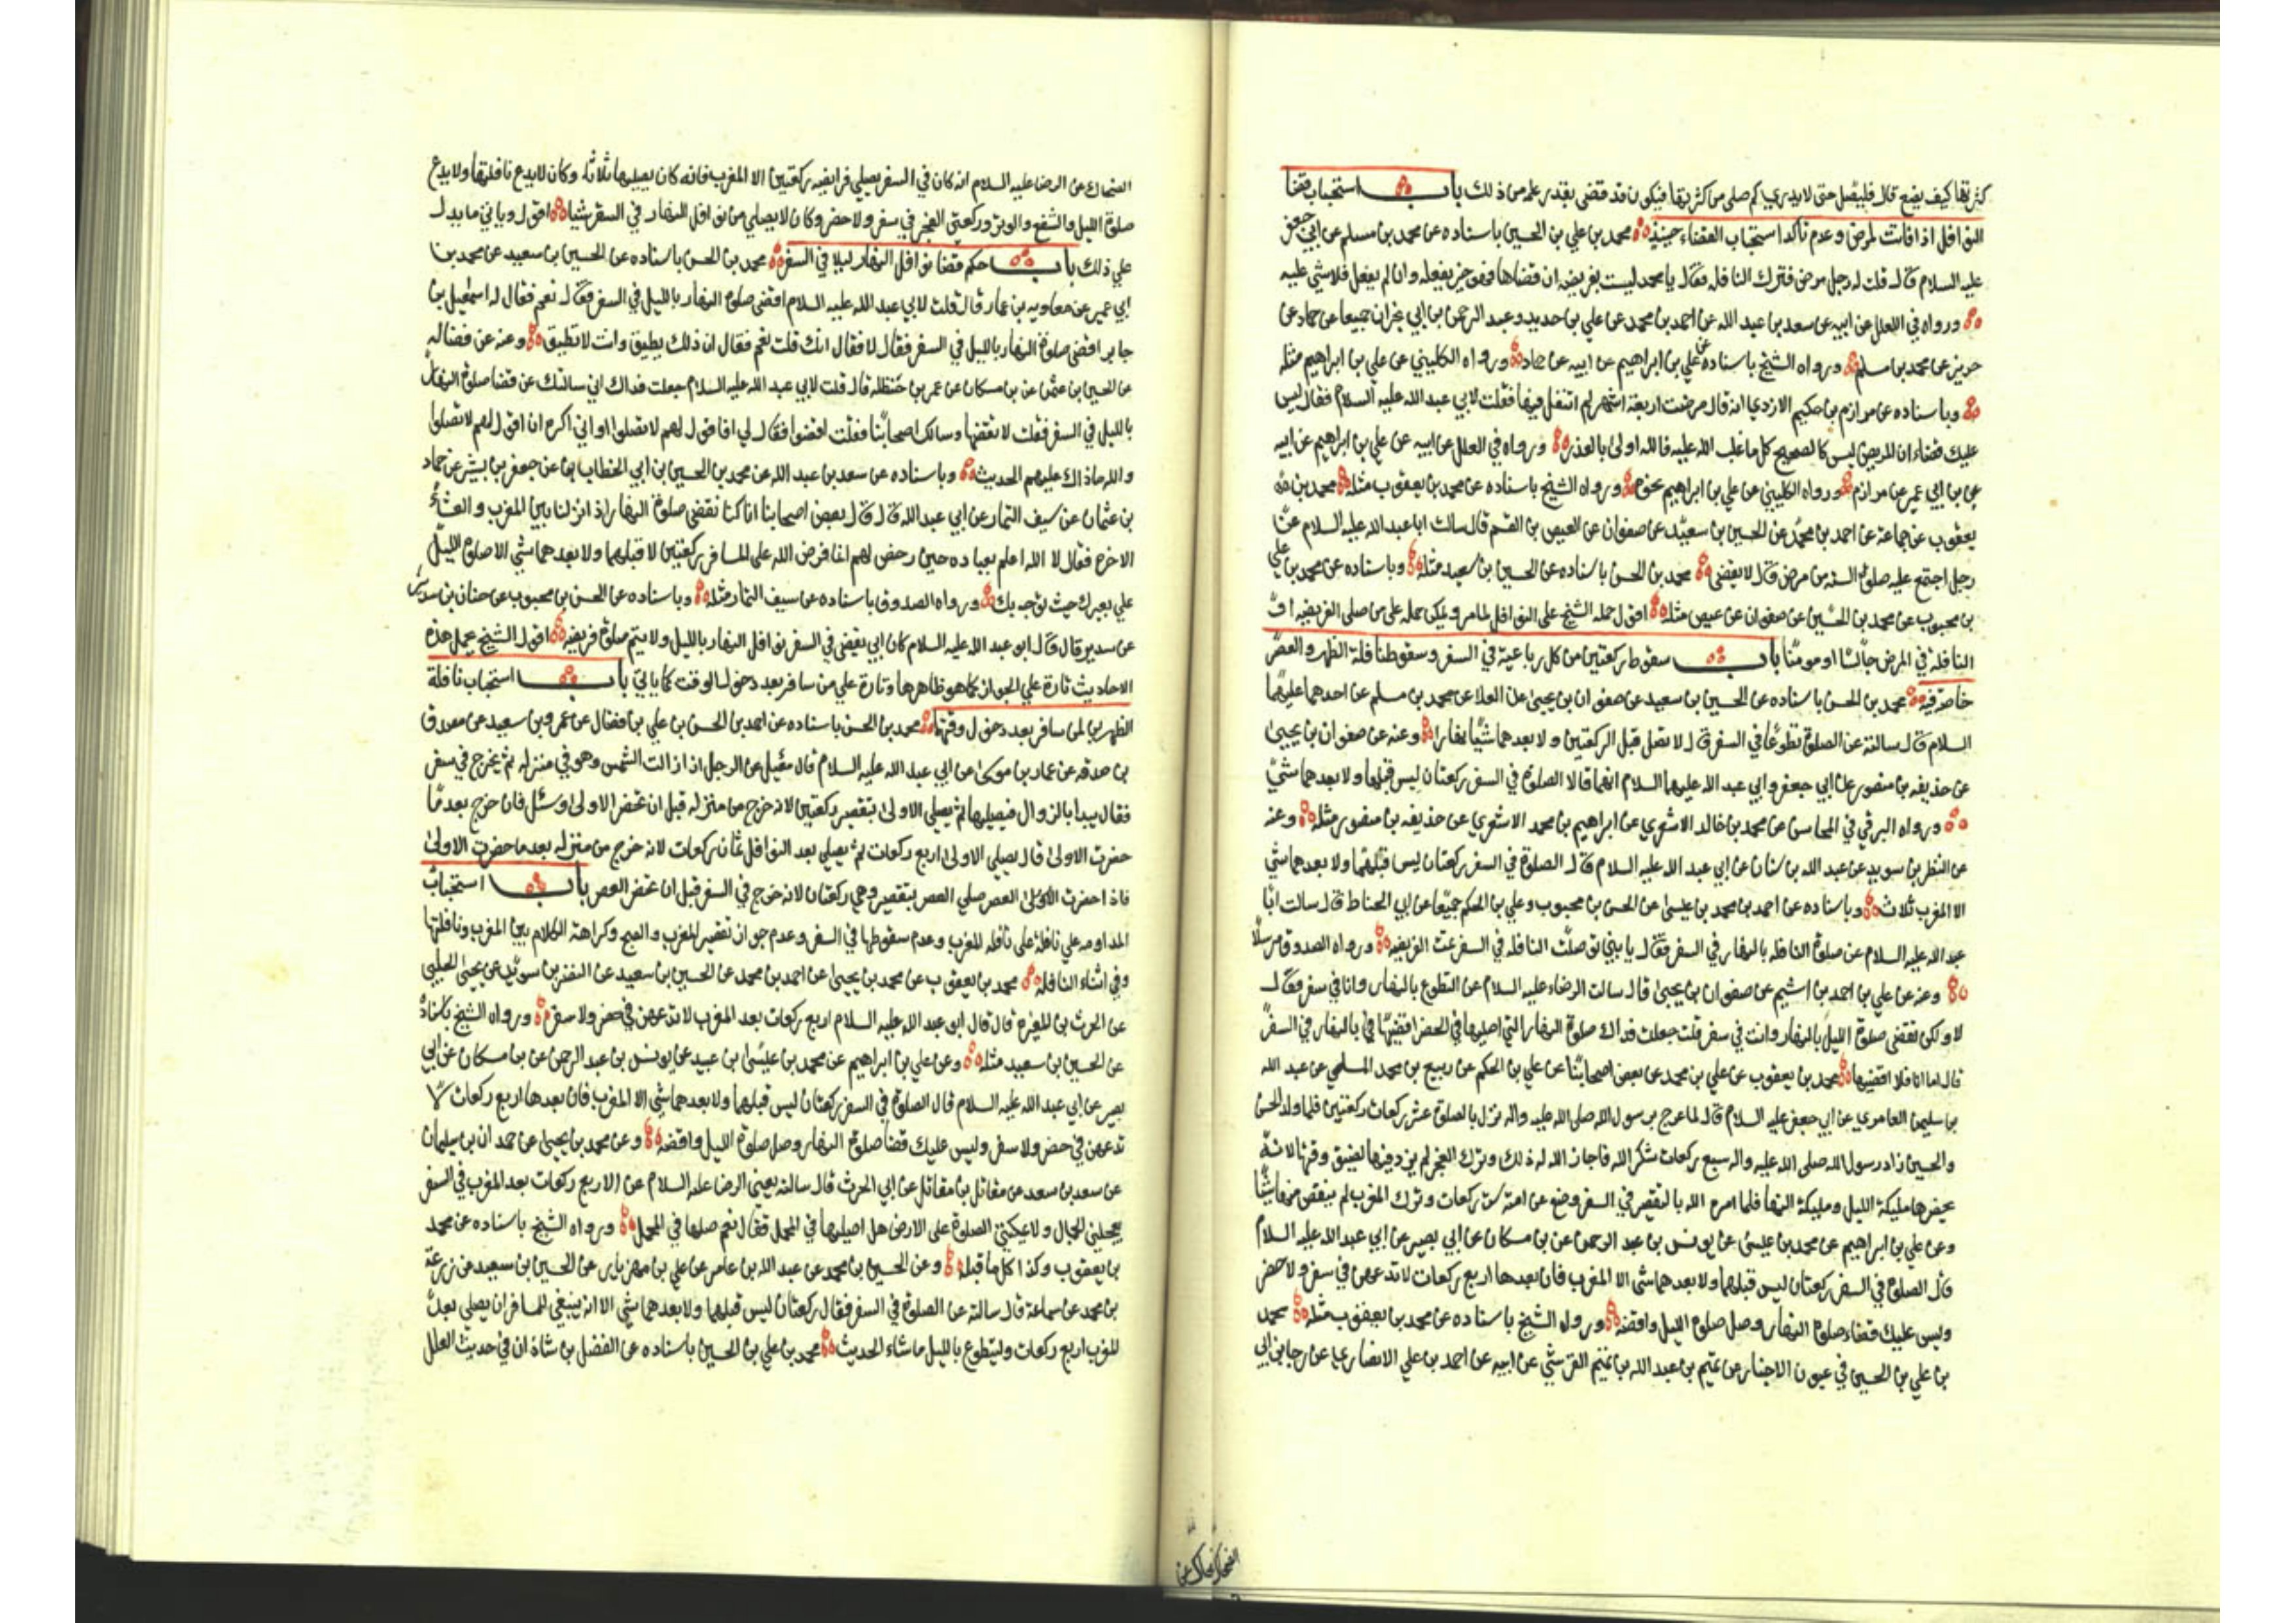 كثرتها كيف يصنع قال فليصل حتى لا يدري كم صلى من كثرتها فيكون قد قضى بقدر علمه من ذلك باب استحباب قضا
النوافل اذا فاتت لمرض وعدم تأكد استحباب القضاء حينئذ محمد بن علي بن الحسين باسناده عن محمد بن مسلم عن ابي جعفر
عليه السلام قال قلت له رجل مرض فترك النافلة فقال يا محمد ليست بفريضة ان قضاها فهو خير يفعله وان لم يفعل فلا شي عليه
ورواه في العلل عن ابيه عن سعد بن عبد الله عن احمد بن محمد عن علي بن حديد وعبد الرحمن بن ابي نجران جميعا عن حماد عن
حريز عن محمد بن مسلم ورواه الشيخ باسناده عن علي بن ابراهيم عن ابيه عن حماد ورواه الكليني عن علي بن ابراهيم مثله
وباسناده عن مرازم بن حكيم الازدي انه قال مرضت اربعة اشهر لم اتنفل فيها فقلت لابي عبد الله عليه السلام فقال ليس
عليك قضاء ان المريض ليس كالصحيح كل ما غلب الله عليه فالله اولى بالعذر ورواه في العلل عن ابيه عن علي بن ابراهيم عن ابيه
عن بن ابي عمير عن مرازم ورواه الكليني عن علي بن ابراهيم نحوه ورواه الشيخ باسناده عن محمد بن يعقوب مثله محمد بن
يعقوب عن جماعة عن احمد بن محمد عن الحسين بن سعيد عن صفوان عن العيص بن القسم قال سالت ابا عبد الله عليه السلام عن
رجل اجتمع عليه صلوة السنة من مرض قال لا يقضى محمد بن الحسن باسناده عن الحسين بن سعيد مثله وباسناده عن محمد بن علي
بن محبوب عن محمد بن الحسين عن صفوان عن عيص مثله اقول حمله الشيخ على النوافل لما مر ويمكن حمله على من صلى الفريضة او
النافلة في المرض جالسا او موميا باب سقوط ركعتين من كل رباعية في السفر وسقوط نافلة الظهر والعصر
خاصة فيه محمد بن الحسن باسناده عن الحسين بن سعيد عن صفوان بن يحيى عن العلا عن محمد بن مسلم عن احدهما عليهما
السلام قال سالته عن الصلوة تطوعا في السفر قال لا تصل قبل الركعتين ولا بعدهما شيئا نهارا وعنه عن صفوان بن يحيى
عن حذيفه بن منصور عن ابي جعفر وابي عبد الله عليهما السلام انهما قالا الصلوة في السفر ركعتان ليس قبلهما ولا بعدهما شي
ورواه البرقي في المحاسن عن محمد بن خالد الاشعري عن ابراهيم بن محمد الاشعري عن حذيفه بن منصور مثله وعنه
عن النظر بن سويد عن عبد الله بن سنان عن ابي عبد الله عليه السلام قال الصلوة في السفر ركعتان ليس قبلهما ولا بعدهما شي
الا المغرب ثلاث وباسناده عن احمد بن محمد بن عيسى عن الحسن بن محبوب وعلي بن الحكم جميعا عن ابي الحناط قال سالت ابا
عبد الله عليه السلام عن صلوة النافلة بالنهار في السفر فقال يا بني لو صلحت النافلة في السفر تمت الفريضه ورواه الصدوق مرسلا
وعنه عن علي بن احمد بن اشيم عن صفوان بن يحيى قال سالت الرضاء عليه السلام عن التطوع بالنهار وانا في سفر فقال
لا ولكن تقضى صلوة الليل بالنهار وانت في سفر قلت جعلت فداك صلوة النهار التي اصليها في الحضر اقضيها في بالنهار في السفر
قال اما انا فلا اقضيها محمد بن يعقوب عن علي بن محمد عن بعض اصحابنا عن علي بن الحكم عن ربيع بن محمد المسلمي عن عبد الله
بن سليمن العامري عن ابي جعفر عليه السلام قال لما عرج برسول الله صلى الله عليه واله نزل بالصلوة عشر ركعات ركعتين فلما ولد الحسن
والحسين زاد رسول الله صلى الله عليه واله سبع ركعات شكر الله فاجاز الله له ذلك وترك الفجر لم يزد فيها لضيق وقتها لانه
يحضرها مليكة الليل ومليكة النهار فلما امره الله بالتقصير في السفر وضع عن امته ست ركعات وترك المغرب لم ينقص منها شيا
وعن علي بن ابراهيم عن محمد بن عيسى عن يونس بن عبد الرحمن عن بن مسكان عن ابي بصير عن ابي عبد الله عليه السلام
قال الصلوة في السفر ركعتان ليس قبلهما ولا بعدهما شي الا المغرب فان بعدها اربع ركعات لا تدعهن في سفر ولا حضر
وليس عليك قضاء صلوة النهار وصل صلوة الليل واقضه ورواه الشيخ باسناده عن محمد بن يعقوب مثله محمد
بن علي بن الحسين في عيون الاخبار عن تميم بن عبد الله بن تميم القرشي عن ابيه عن احمد بن علي الانصاري عن رجا بن ابي
الضحاك عن
الضحاك عن الرضا عليه السلام انه كان في السفر يصلي فرايضه ركعتين الا المغرب فانه كان يصليها ثلاثا وكان لا يدع نافلتها ولا يدع
صلوة الليل والشفع والوتر وركعتي الفجر في سفر ولا حضر وكان لا يصلي من نوافل النهار في السفر شيا اقول وياتي ما يدل
على ذلك باب حكم قضا نوافل النهار ليلا في السفر محمد بن الحسن باسناده عن الحسين بن سعيد عن محمد بن
ابي عمير عن معاويه بن عمار قال قلت لابي عبد الله عليه السلام اقضى صلوة النهار بالليل في السفر فقال نعم فقال له اسمعيل بن
جابر اقضى صلوة النهار بالليل في السفر فقال لا فقال انك قلت نعم فقال ان ذلك يطيق وانت لا تطيق وعنه عن فضاله
عن الحسين بن عثمن عن بن مسكان عن عمر بن حنظله قال قلت لابي عبد الله عليه السلام جعلت فداك اني سالتك عن قضا صلوة النهار
بالليل في السفر فقلت لا تقضها وسالك اصحابنا فقلت اقضوا فقال لي افاقول لهم لا تصلوا او اني اكره ان اقول لهم لا تصلوا
والله ما ذاك عليهم الحديث وباسناده عن سعد بن عبد الله عن محمد بن الحسين بن ابي الخطاب عن جعفر بن بشير عن حماد
بن عثمان عن سيف التمار عن ابي عبد الله قال قال بعض اصحابنا انا كنا نقضى صلوة النهار اذا نزلنا بين المغرب والعشاء
الاخره فقال لا الله اعلم بعباده حين رخص لهم انما فرض الله على المسافر ركعتين لا قبلهما ولا بعدهما شي الا صلوة الليل
على بعيرك حيث توجه بك ورواه الصدوق باسناده عن سيف التمار مثله وباسناده عن الحسن بن محبوب عن حنان بن سدير
عن سدير قال قال ابو عبد الله عليه السلام كان ابي يقضى في السفر نوافل النهار بالليل ولا يتم صلوة فريضه اقول الشيخ يحمل هذه
الاحاديث تارة على الجواز كما هو ظاهرها وتارة على من سافر بعد دخول الوقت كما ياتي باب استحباب نافلة
الظهرين لمن سافر بعد دخول وقتها محمد بن الحسن باسناده عن احمد بن الحسن بن علي بن فضال عن عمرو بن سعيد عن مصدق
بن صدقه عن عمار بن موسى عن ابي عبد الله عليه السلام قال سئل عن الرجل اذا زالت الشمس وهو في منزله ثم يخرج في سفر
فقال يبدا بالزوال فيصليها ثم يصلي الاولى بتقصير ركعتين لانه خرج من منزله قبل ان تحضر الاولى وسئل فان خرج بعد ما
حضرت الاولى قال يصلي الاولى اربع ركعات ثم يصلي بعد النوافل ثمان ركعات لانه خرج من منزله بعد ما حضرت الاولى
فاذا حضرت العصر صلى العصر بتقصير وهي ركعتان لانه خرج في السفر قبل ان تحضر العصر باب استحباب
المداومه على نافلة المغرب وعدم سقوطها في السفر وعدم جواز تقصير المغرب والصبح وكراهة الكلام بين المغرب ونافلتها
وفي اثناء النافلة محمد بن يعقوب عن محمد بن يحيى عن احمد بن محمد عن الحسين بن سعيد عن النضر بن سويد عن يحيى الحلبي
عن الحرث بن المغيره قال قال ابو عبد الله عليه السلام اربع ركعات بعد المغرب لا تدعهن في حضر ولا سفر ورواه الشيخ باسناده
عن الحسين بن سعيد مثله وعن علي بن ابراهيم عن محمد بن عيسى بن عبيد عن يونس بن عبد الرحمن عن بن مسكان عن ابي
بصير عن ابي عبد الله عليه السلام قال الصلوة في السفر ركعتان ليس قبلهما ولا بعدهما شي الا المغرب فان بعدها اربع ركعات لا
تدعهن في حضر ولا سفر وليس عليك قضا صلوة النهار وصل صلوة الليل واقضه وعن محمد بن يحيى عن حمدان بن سليمان
عن سعد بن سعد عن مقاتل بن مقاتل عن ابي الحرث قال سالته يعني الرضا عليه السلام عن الاربع ركعات بعد المغرب في السفر
يعجلني الجمال ولا يمكنني الصلوة على الارض هل اصليها في المحمل فقال نعم صلها في المحمل ورواه الشيخ باسناده عن محمد
بن يعقوب وكذا كل ما قبله وعن الحسين بن محمد عن عبد الله بن عامر عن علي بن مهزيار عن الحسين بن سعيد عن زرعة
بن محمد عن سماعة قال سالته عن الصلوة في السفر فقال ركعتان ليس قبلهما ولا بعدهما شي الا انه ينبغي للمسافر ان يصلي بعد
المغرب اربع ركعات وليتطوع بالليل ما شاء الحديث محمد بن علي بن الحسين باسناده عن الفضل بن شاذان في حديث العلل